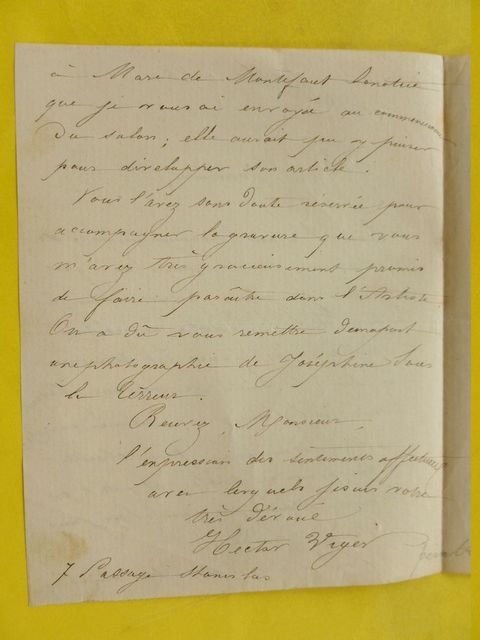 à Marc de Montifaut la notice
que je vous ai envoyée au commencement
du salon; elle aurait pu y puiser
pour développer son article.
Vous l'avez sans doute réservée pour
accompagner la gravure que vous
m'avez très gracieusement promis
de faire paraître dans l'Artiste.
On a dû vous remettre de ma part
une photographie de Joséphine sous
la Terreur.
Recevez, Monsieur,
l'expression des sentiments affectueux
avec lesquels je suis votre
très dévoué
Hector Viger
7 Passage Stanislas